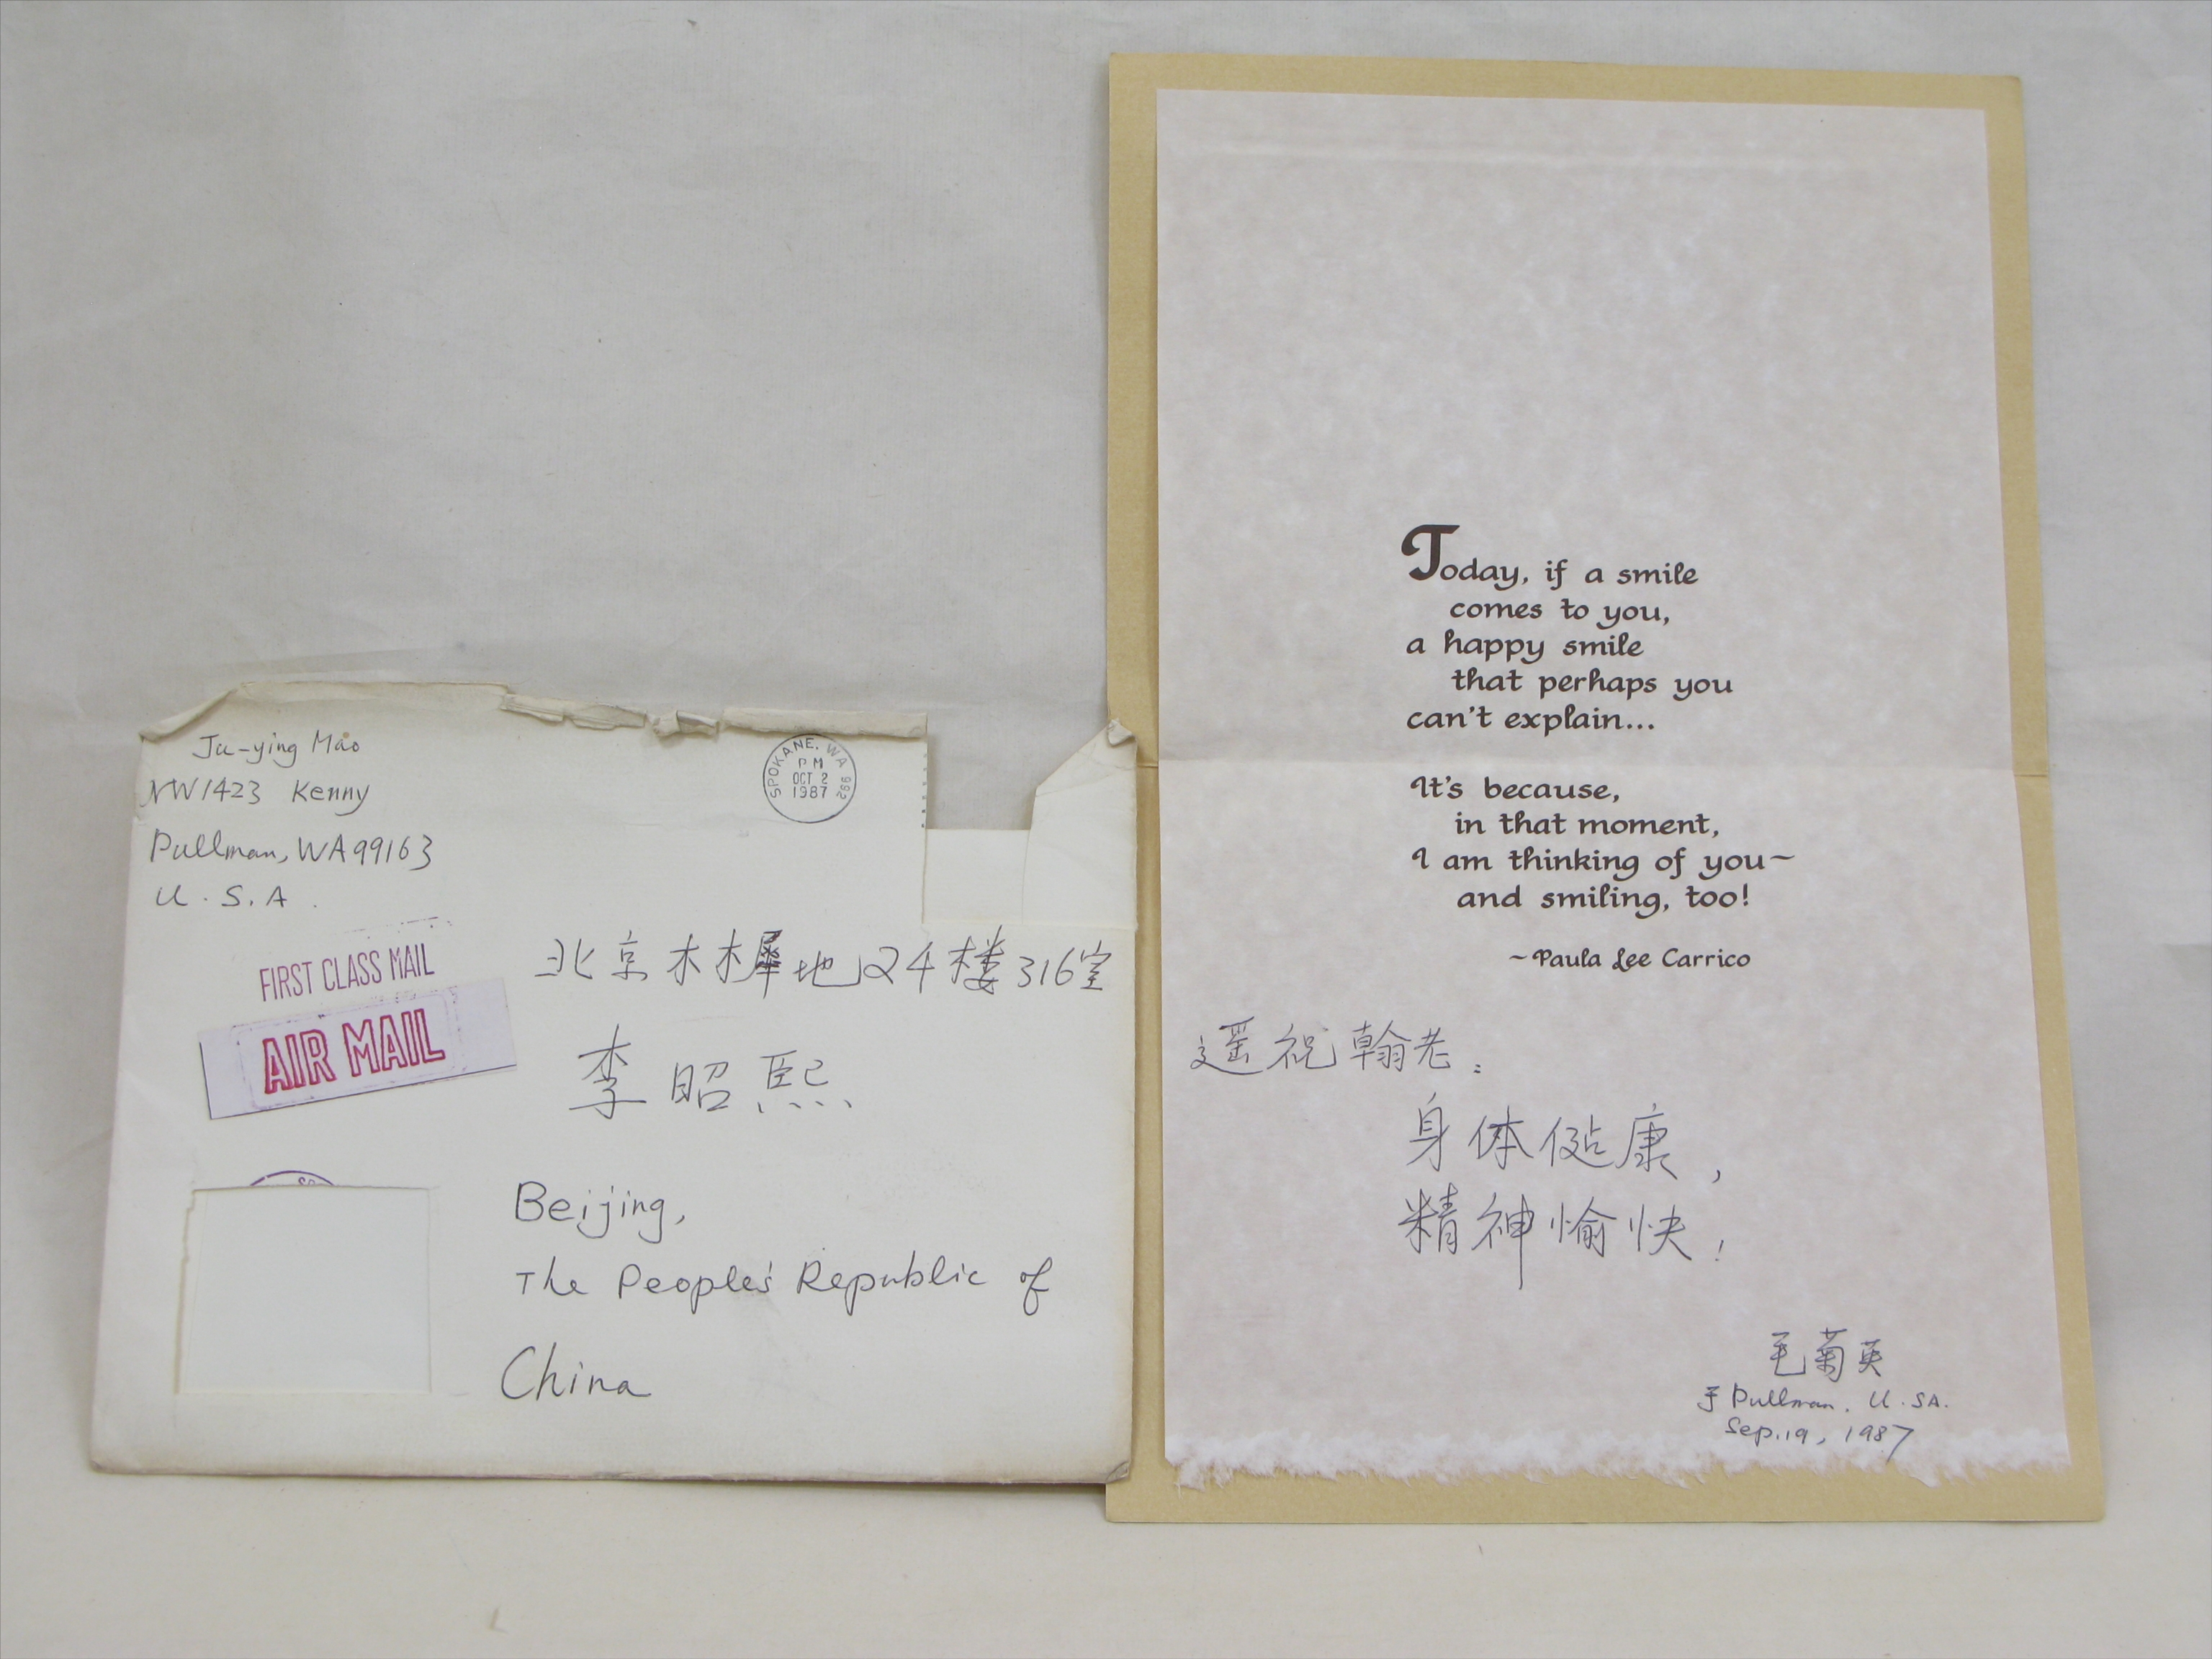 Ju-ying Mao
NW1423 Kenny
Pullman, WA99163
U.S.A.
SPOKANE, WA 992
PM
OCT 2
1987
FIRST CLASS MAIL
AIR MAIL
北京木樨地24楼316室
李昭熙
Beijing,
The People's Republic of
China
Today, if a smile
comes to you,
a happy smile
that perhaps you
can't explain...
It's because,
in that moment,
I am thinking of you~
and smiling, too!
~Paula Lee Carrico
遥祝翰老:
身体健康,
精神愉快!
毛菊英
于 Pullman. U.SA.
Sep.19, 1987